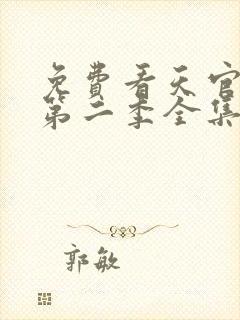 免费看天官
第二季全集
郭敏